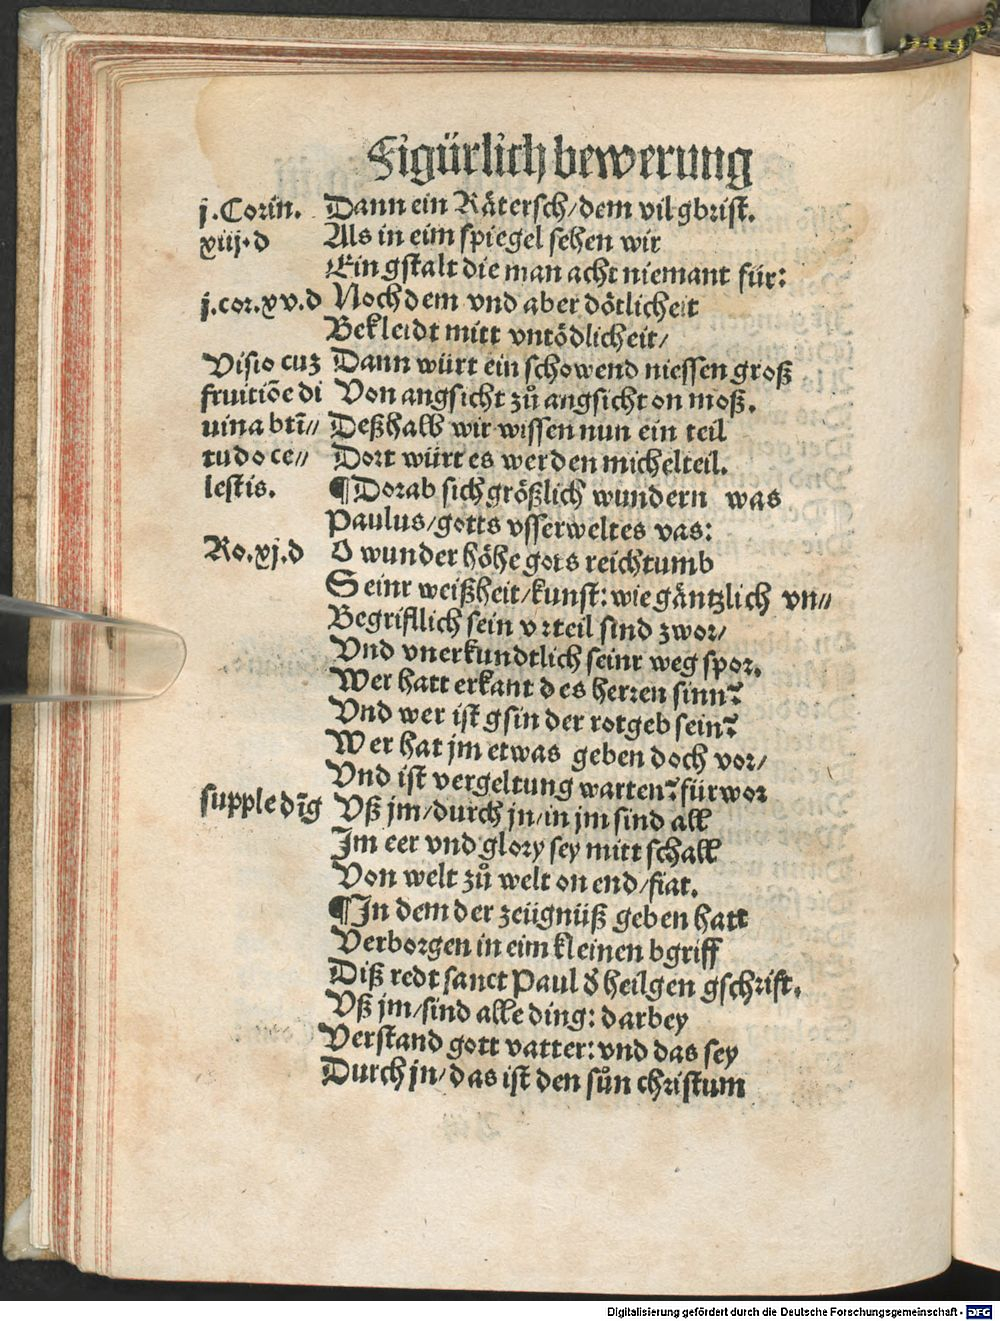 Figürlich bewerung
j. Corin. Dann ein Rätersch/dem vil gbrist.
xiij.d Als in eim spiegel sehen wir
Ein gstalt die man acht niemant für:
j.cor.xv.d Noch dem vnd aber dötlicheit
Bekleidt mitt vntödlicheit/
Visio cuz Dann würt ein schowend niessen groß
fruitiōe di Von angsicht zů angsicht on moß.
uina btī// Deßhalb wir wissen nun ein teil
tudo ce// Dort würt es werden michelteil.
lestis. ¶Dorab sich größlich wundern was
Paulus/gotts vsserweltes vas:
Ro.xj.d O wunder höhe gots reichtumb
Seinr weißheit/kunst: wie gäntzlich vn//
Begriffllich sein vrteil sind zwor/
Vnd vnerkundtlich seinr weg spor.
Wer hatt erkant des herren sinn?
Vnd wer ist gsin der rotgeb sein?
Wer hat jm etwas geben doch vor/
Vnd ist vergeltung warten? fürwor
supple dīg Vß jm/durch jn/in jm sind all
Jm eer vnd glory sey mitt schall
Von welt zů welt on end/fiat.
¶Jn dem der zeügnüß geben hatt
Verborgen in eim kleinen bgriff
Diß redt sanct Paul d' heilgen gschrift.
Vß jm/sind alle ding: darbey
Verstand gott vatter: vnd das sey
Durch jn/das ist den sůn christum
Digitalisierung gefördert durch die Deutsche Forschungsgemeinschaft - DFG